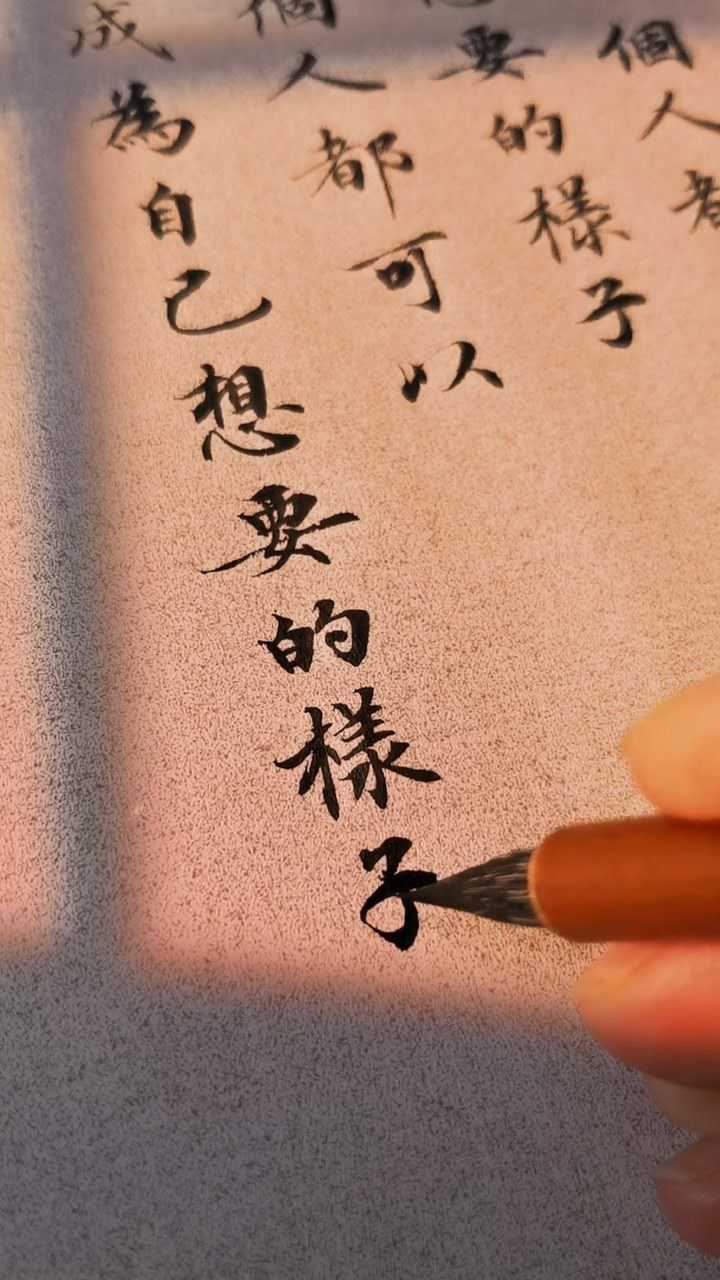 個人
要的樣子
個人都可以
成為自己想要的樣子